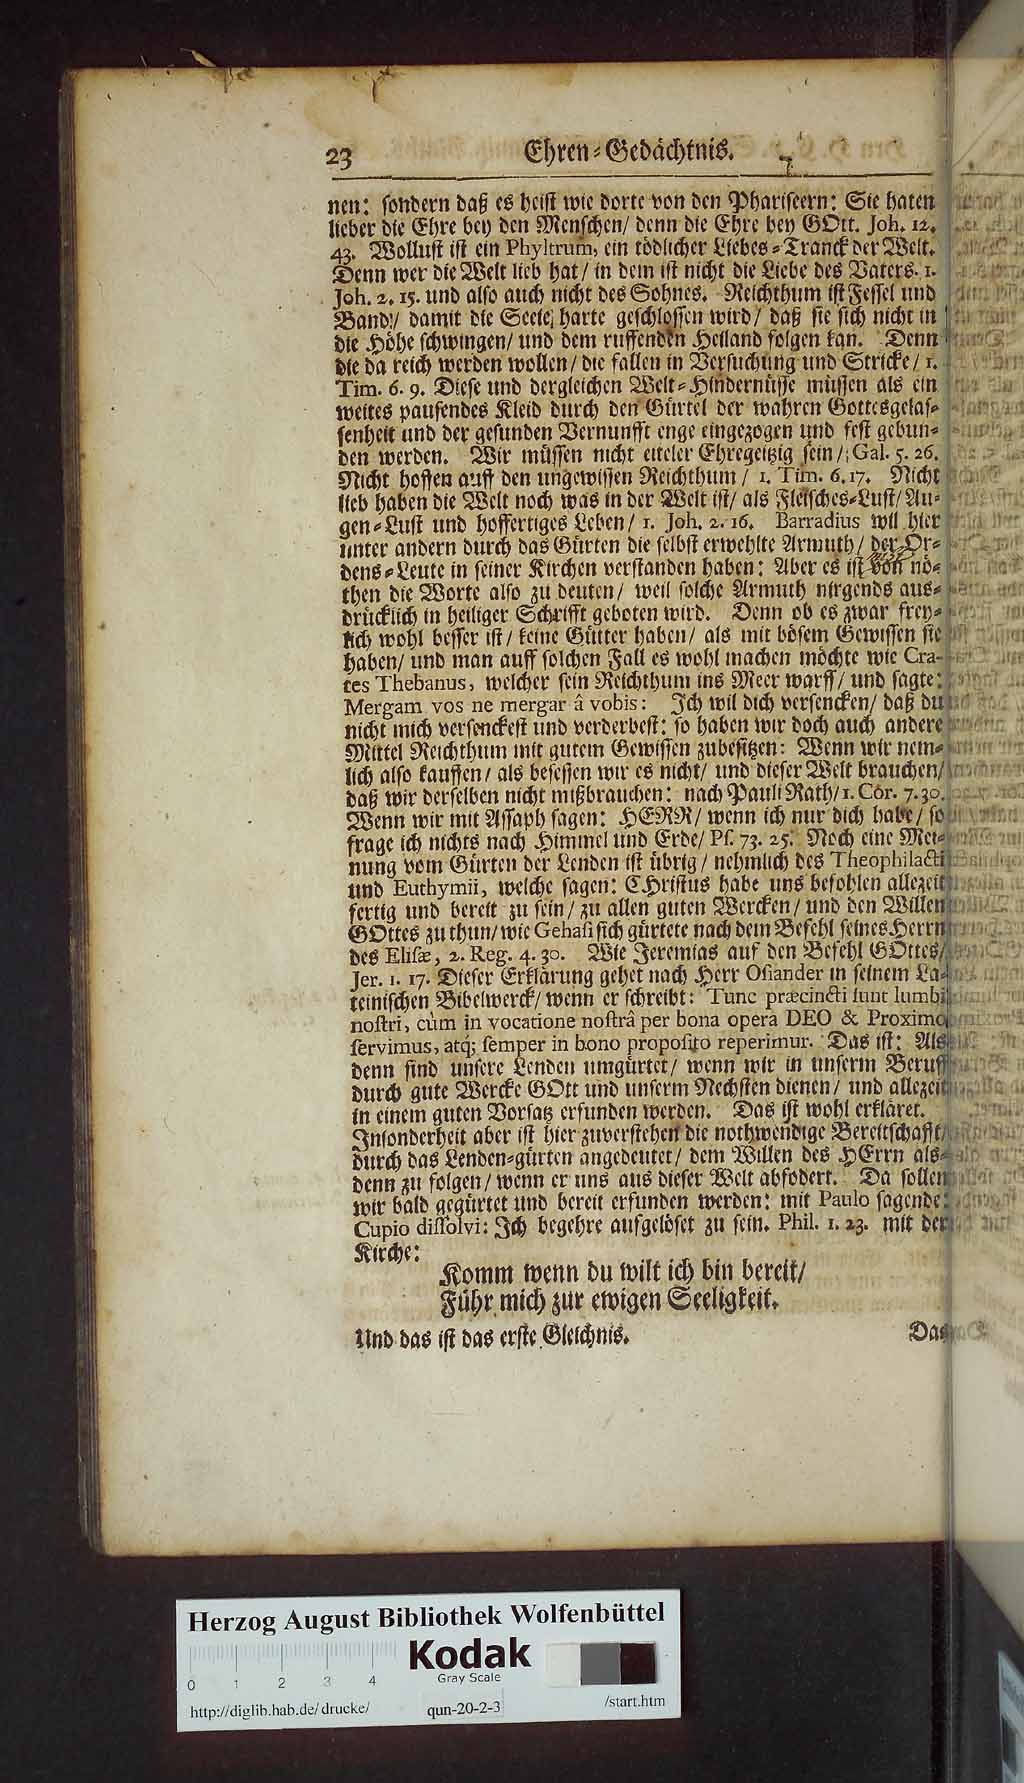 23 Ehren-Gedächtnis.
nen: sondern daß es heist wie dorte von den Phariseern: Sie haten
lieber die Ehre bey den Menschen/ denn die Ehre bey GOtt. Joh. 12.
43. Wollust ist ein Phyltrum, ein tödlicher Liebes-Tranck der Welt.
Denn wer die Welt lieb hat/ in dem ist nicht die Liebe des Vaters. 1.
Joh. 2. 15. und also auch nicht des Sohnes. Reichthum ist Fessel und
Band:/ damit die Seele harte geschlossen wird/ daß sie sich nicht in
die Höhe schwingen/ und dem ruffenden Heiland folgen kan. Denn
die da reich werden wollen/ die fallen in Versuchung und Stricke/ 1.
Tim. 6. 9. Diese und dergleichen Welt-Hindernüsse müssen als ein
weites pausendes Kleid durch den Gürtel der wahren Gottesgelas-
senheit und der gesunden Vernunfft enge eingezogen und fest gebun-
den werden. Wir müssen nicht eiteler Ehregeitzig sein/ Gal. 5. 26.
Nicht hoffen auff den ungewissen Reichthum/ 1. Tim. 6. 17. Nicht
lieb haben die Welt noch was in der Welt ist/ als Fleisches-Lust/ Au-
gen-Lust und hoffertiges Leben/ 1. Joh. 2. 16. Barradius wil hier
unter andern durch das Gürten die selbst erwehlte Armuth/ der Or-
dens-Leute in seiner Kirchen verstanden haben: Aber es ist von nö-
then die Worte also zu deuten/ weil solche Armuth nirgends aus-
drücklich in heiliger Schrifft geboten wird. Denn ob es zwar frey-
lich wohl besser ist/ keine Gütter haben/ als mit bösem Gewissen sie
haben/ und man auff solchen Fall es wohl machen möchte wie Cra-
tes Thebanus, welcher sein Reichthum ins Meer warff/ und sagte:
Mergam vos ne mergar â vobis: Ich wil dich versencken/ daß du
nicht mich versenckest und verderbest: so haben wir doch auch andere
Mittel Reichthum mit gutem Gewissen zubesitzen: Wenn wir nem-
lich also kauffen/ als besessen wir es nicht/ und dieser Welt brauchen/
daß wir derselben nicht mißbrauchen: nach Pauli Rath/ 1. Cor. 7. 30.
Wenn wir mit Assaph sagen: HERR/ wenn ich nur dich habe/ so
frage ich nichts nach Himmel und Erde/ Ps. 73. 25. Noch eine Mei-
nung vom Gürten der Lenden ist übrig/ nehmlich des Theophilacti
und Euthymii, welche sagen: CHristus habe uns befohlen allezeit
fertig und bereit zu sein/ zu allen guten Wercken/ und den Willen
GOttes zu thun/ wie Gehasi sich gürtete nach dem Befehl seines Herrn
des Elisæ, 2. Reg. 4. 30. Wie Jeremias auf den Befehl GOttes/
Jer. 1. 17. Dieser Erklärung gehet nach Herr Osiander in seinem La-
teinischen Bibelwerck/ wenn er schreibt: Tunc præcincti sunt lumbi
nostri, cùm in vocatione nostrâ per bona opera DEO & Proximo
servimus, atq; semper in bono proposito reperimur. Das ist: Als
denn sind unsere Lenden umgürtet/ wenn wir in unserm Beruff
durch gute Wercke GOtt und unserm Nechsten dienen/ und allezeit
in einem guten Vorsatz erfunden werden. Das ist wohl erkläret.
Insonderheit aber ist hier zuverstehen die nothwendige Bereitschafft/
durch das Lenden-gürten angedeutet/ dem Willen des HErrn als-
denn zu folgen/ wenn er uns aus dieser Welt abfodert. Da sollen
wir bald gegürtet und bereit erfunden werden: mit Paulo sagende:
Cupio dissolvi: Ich begehre aufgelöset zu sein. Phil. 1. 23. mit der
Kirche:
Komm wenn du wilt ich bin bereit/
Führ mich zur ewigen Seeligkeit.
Und das ist das erste Gleichnis. Das
Herzog August Bibliothek Wolfenbüttel
Kodak
Gray Scale
0 1 2 3 4
http://diglib.hab.de/drucke/ qun-20-2-3 /start.htm